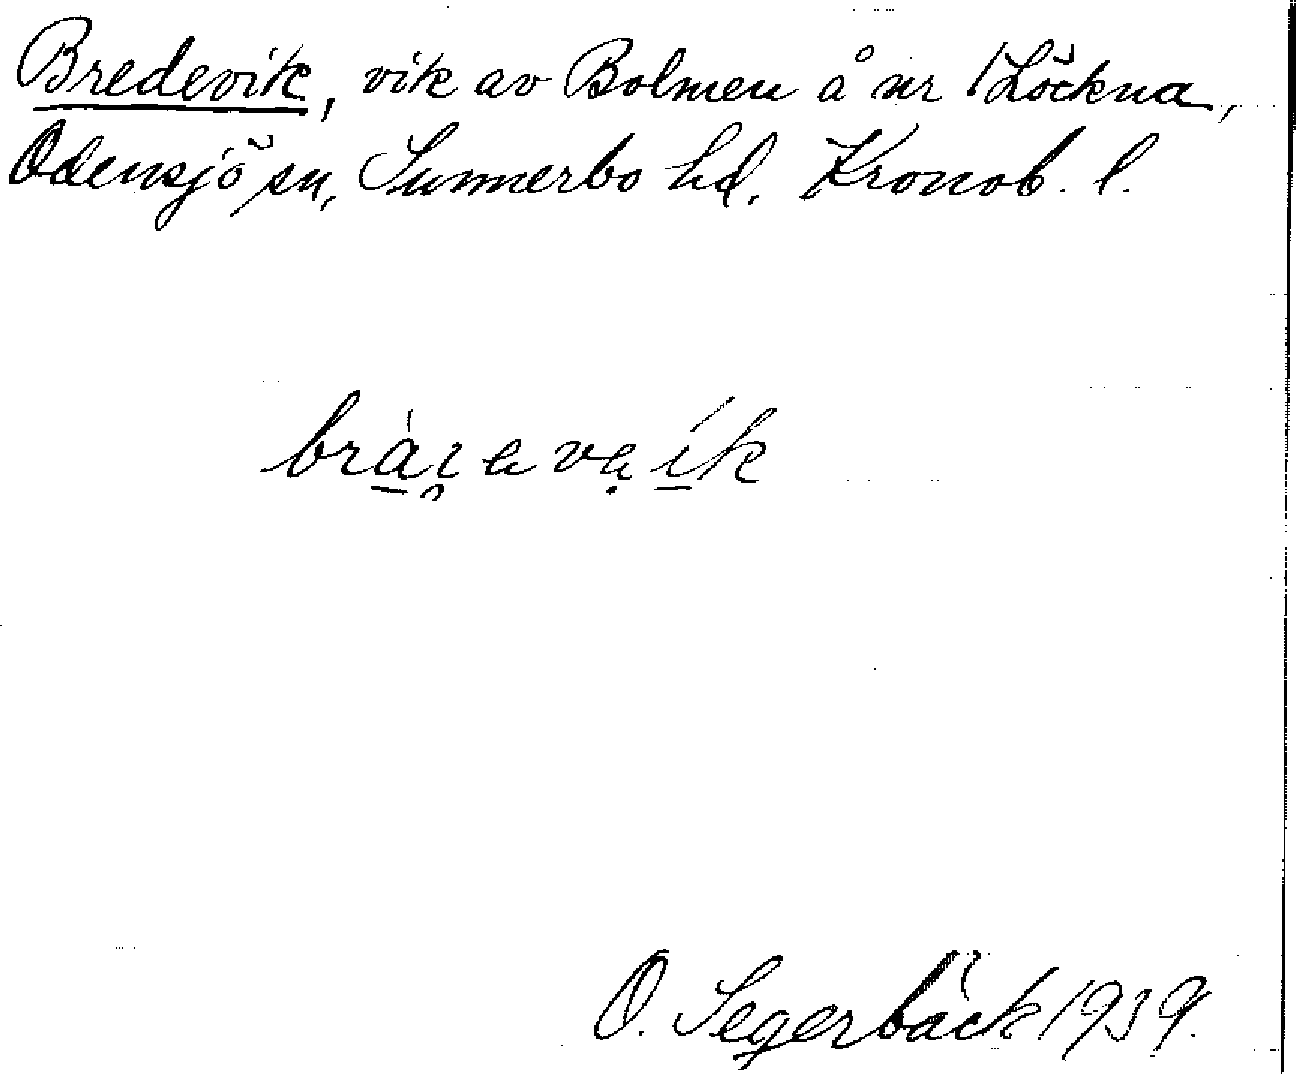 Bredevik, vik av Bolmen å nr 1 Löckna,
Odensjö sn, Sunnerbo hd. Kronob. l.
O. Segerbäck 1939.